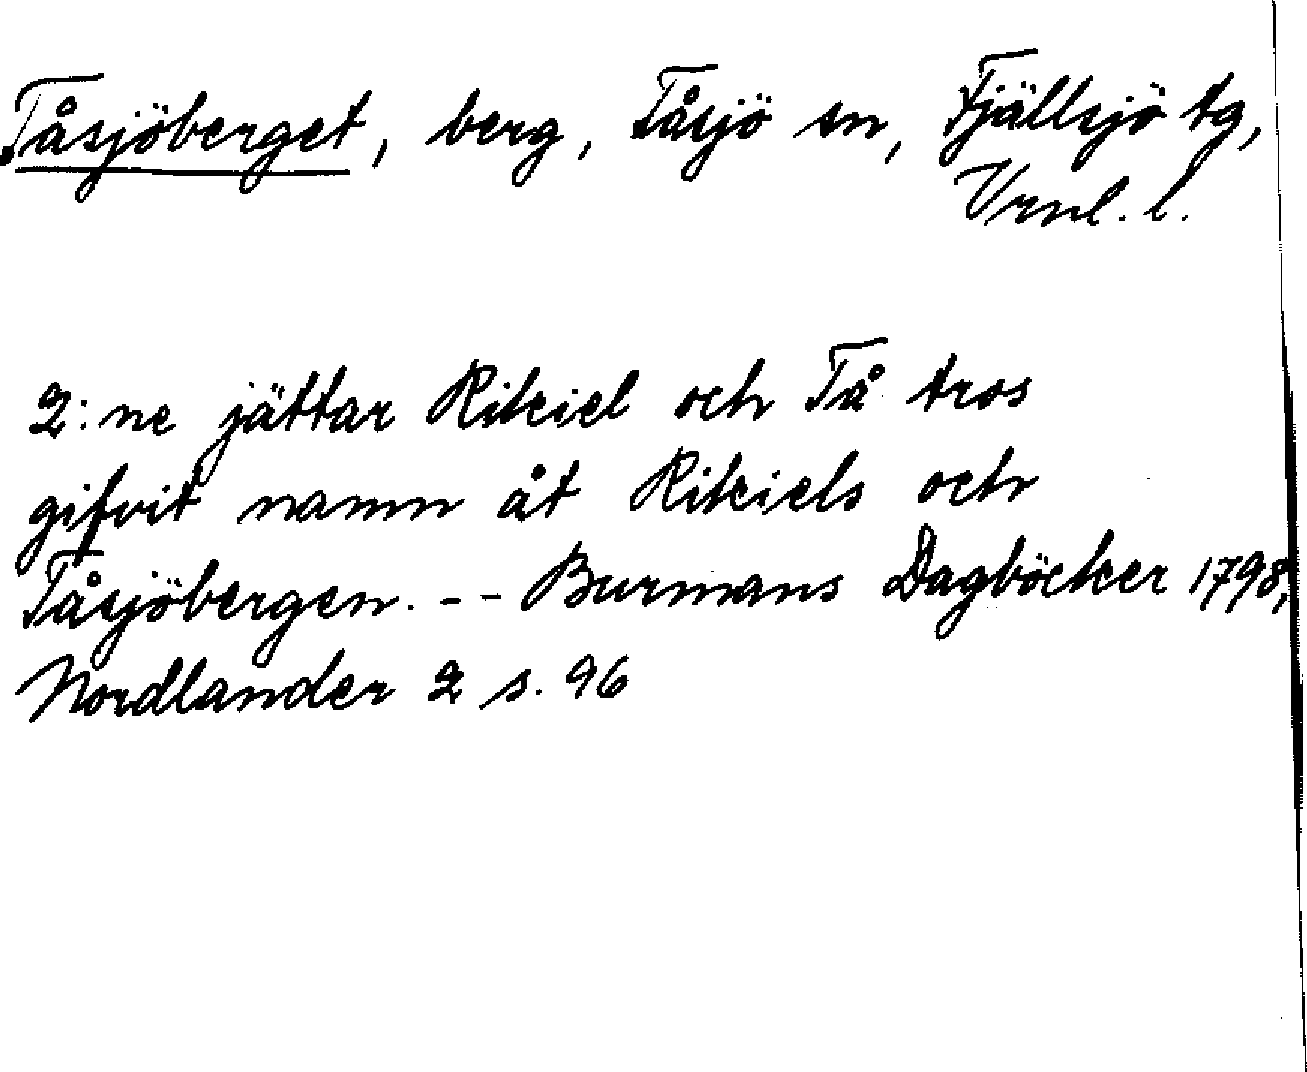 Tåsjöberget, berg, Tåsjö sn, Fjällsjö tg,
Vrnl. l.
2:ne jättar Rikiel och Tå tros
gifvit namn åt Rikiels och
Tåsjöbergen. - - Burmans Dagböcker 1798,
Nordlander 2 s. 96